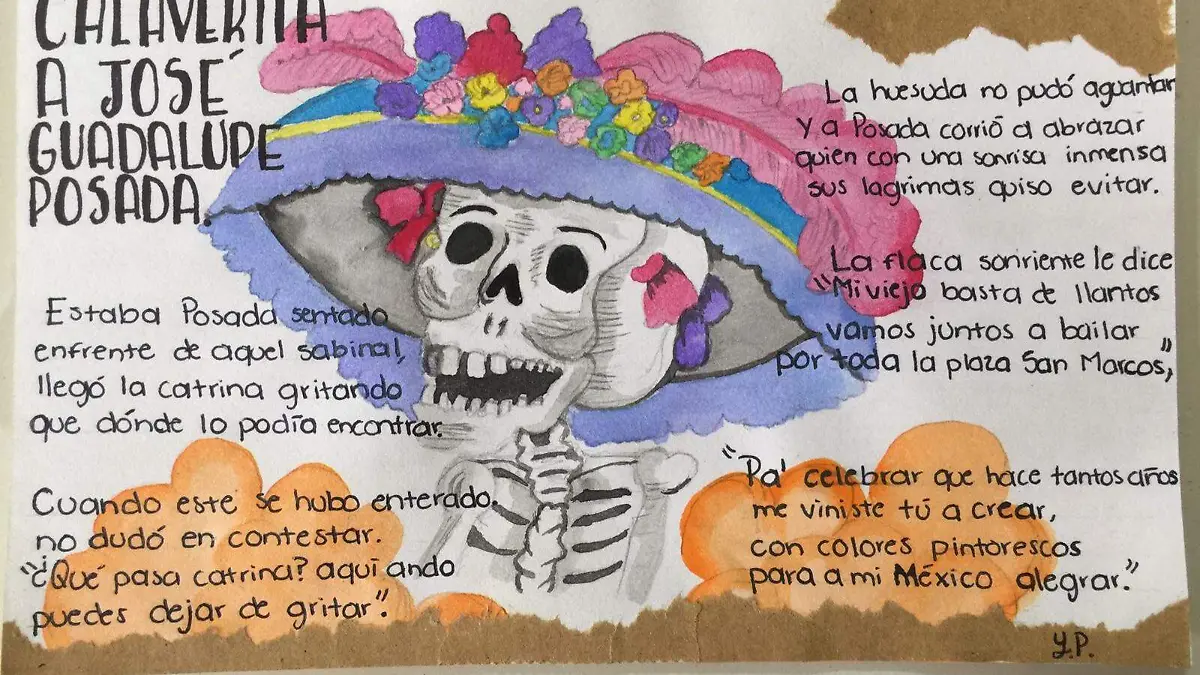 CALAVERITA
A JOSÉ
GUADALUPE
POSADA.
Estaba Posada sentado
enfrente de aquel sabinal,
llegó la catrina gritando
que dónde lo podía encontrar.
Cuando este se hubo enterado,
no dudó en contestar.
"¿Qué pasa catrina? aquí ando
puedes dejar de gritar".
La huesuda no pudó aguantar
y a Posada corrió a abrazar
quien con una sonrisa inmensa
sus lagrimas quiso evitar.
La flaca sonriente le dice
"Mi viejo basta de llantos
vamos juntos a bailar
por toda la plaza San Marcos,"
"Pa' celebrar que hace tantos años
me viniste tú a crear,
con colores pintorescos
para a mi México alegrar."
Y.P.